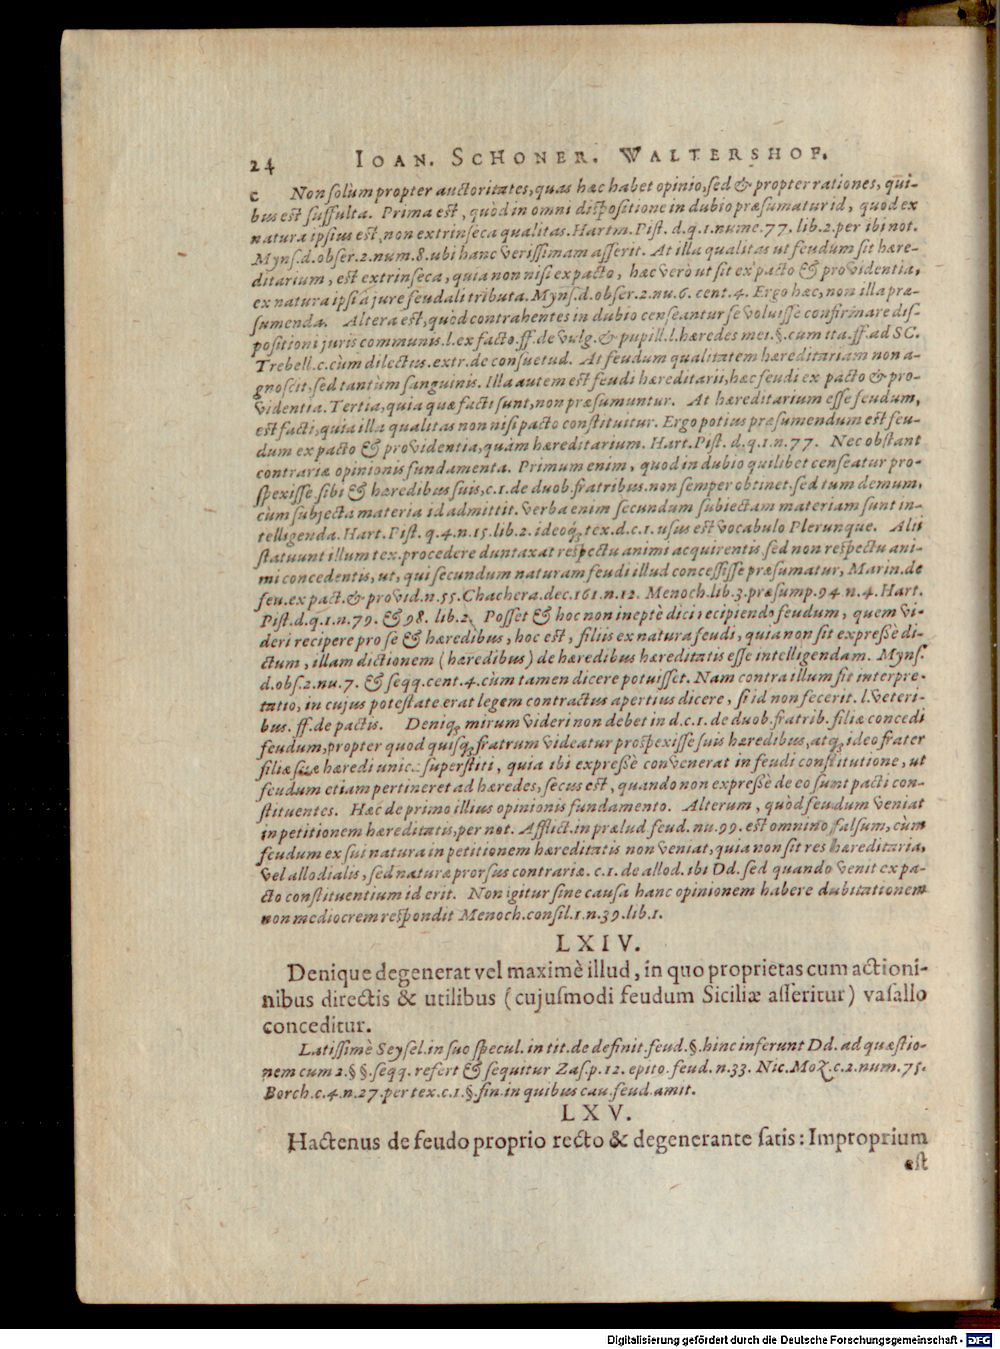 24 IOAN. SCHONER. WALTERSHOF.
c Non solùm propter auctoritates, quas hæc habet opinio, sed & propter rationes, qui-
bus est suffulta. Prima est, quòd in omni dispositione in dubio præsumatur id, quod ex
natura ipsius est, non extrinseca qualitas. Hartm. Pist. d. q. 1. nume. 77. lib. 2. per ibi not.
Myns. d. obser. 2. num. 8. ubi hanc verissimam asserit. At illa qualitas ut feudum sit hære-
ditarium, est extrinseca, quia non nisi ex pacto, hæc verò ut sit ex pacto & providentia,
ex natura ipsi à jure feudali tributa. Myns. d. obser. 2. nu. 6. cent. 4. Ergo hæc, non illa præ-
sumenda. Altera est, quòd contrahentes in dubio censeantur se voluisse confirmare dis-
positioni juris communis. l. ex facto. ff. de vulg. & pupill. l. hæredes mei. §. cum ita. ff. ad SC.
Trebell. c. cùm dilectus. extr. de consuetud. At feudum qualitatem hæreditariam non a-
gnoscit, sed tantùm sanguinis. Illa autem est feudi hæreditarii, hæc feudi ex pacto & pro-
videntia. Tertia, quia quæ facti sunt, non præsumuntur. At hæreditarium esse feudum,
est facti, quia illa qualitas non nisi pacto constituitur. Ergo potius præsumendum est feu-
dum ex pacto & providentia, quàm hæreditarium. Hart. Pist. d. q. 1. n. 77. Nec obstant
contrariæ opinionis fundamenta. Primum enim, quod in dubio quilibet censeatur pro-
spexisse sibi & hæredibus suis, c. 1. de duob. fratribus. non semper obtinet. sed tum demum,
cùm subjecta materia id admittit. verba enim secundum subiectam materiam sunt in-
telligenda. Hart. Pist. q. 4. n. 15. lib. 2. ideoq; tex. d. c. 1. usus est vocabulo Plerunque. Alii
statuunt illum tex. procedere duntaxat respectu animi acquirentis, sed non respectu ani-
mi concedentis, ut, qui secundum naturam feudi illud concessisse præsumatur, Marin. de
feu. ex pact. & provid. n. 55. Chachera. dec. 161. n. 12. Menoch. lib. 3. præsump. 94 n. 4. Hart.
Pist. d. q. 1. n. 79. & 98. lib. 2. Posset & hoc non ineptè dici recipiendo feudum, quem vi-
deri recipere pro se & hæredibus, hoc est, filiis ex natura feudi, quia non sit expreßè di-
ctum, illam dictionem (hæredibus) de hæredibus hæreditatis esse intelligendam. Myns.
d. obs. 2. nu. 7. & seqq. cent. 4. cùm tamen dicere potuisset. Nam contra illum fit interpre-
tatio, in cujus potestate erat legem contractus apertius dicere, si id non fecerit. l. veteri-
bus. ff. de pactis. Deniq; mirum videri non debet in d. c. 1. de duob. fratrib. filiæ concedi
feudum, propter quod quisq; fratrum videatur prospexisse suis hæredibus, atq; ideo frater
filiæ suæ hæredi unicæ superstiti, quia ibi expreßè convenerat in feudi constitutione, ut
feudum etiam pertineret ad hæredes, secus est, quando non expreßè de eo sunt pacti con-
stituentes. Hæc de primo illius opinionis fundamento. Alterum, quòd feudum veniat
in petitionem hæreditatis, per not. Afflict. in prælud. feud. nu. 99. est omnino falsum, cùm
feudum ex sui natura in petitionem hæreditatis non veniat, quia non sit res hæreditaria,
vel allodialis, sed naturæ prorsus contrariæ. c. 1. de allod. ibi Dd. sed quando venit ex pa-
cto constituentium id erit. Non igitur sine causa hanc opinionem habere dubitationem
non mediocrem respondit Menoch. consil. 1. n. 39. lib. 1.
LXIV.
Denique degenerat vel maximè illud, in quo proprietas cum actioni-
nibus directis & utilibus (cujusmodi feudum Siciliæ asseritur) vasallo
conceditur.
Latissimè Seysel. in suo specul. in tit. de definit. feud. §. hinc inferunt Dd. ad quæstio-
nem cum 2. §§. seqq. refert & sequitur Zas. p. 12. epito. feud. n. 33. Nic. Moz. c. 2. num. 75.
Borch. c. 4. n. 27. per tex. c. 1. §. fin. in quibus cau. feud. amit.
LXV.
Hactenus de feudo proprio recto & degenerante satis: Improprium
est
Digitalisierung gefördert durch die Deutsche Forschungsgemeinschaft - DFG